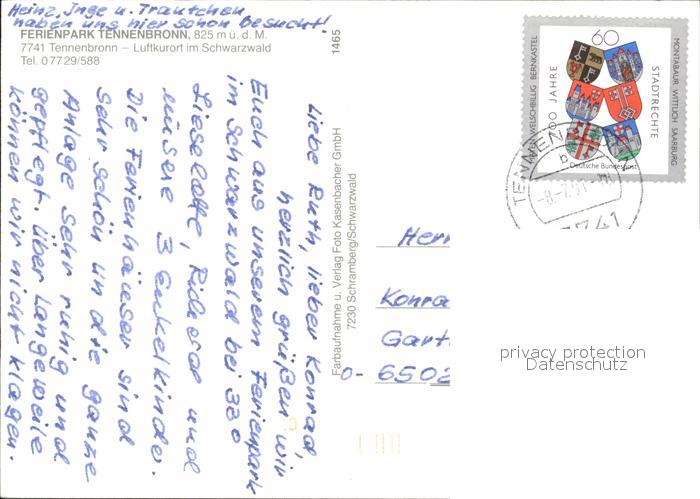 Heinz, Inge u. Trautchen
haben uns hier schon besucht!
FERIENPARK TENNENBRONN, 825 m ü. d. M.
7741 Tennenbronn – Luftkurort im Schwarzwald
Tel. 0 77 29/588
1465
Farbaufnahme u. Verlag Foto Kasenbacher GmbH
7230 Schramberg/Schwarzwald
Liebe Ruth, lieber Konrad,
herzlich grüßen wir
Euch aus unserem Ferienpark
im Schwarzwald bei 33°
Lieselotte, und
unsere 3 Enkelkinder.
Die Ferienhäuser sind
sehr schön und die ganze
Anlage sehr ruhig und
gepflegt. Über Langeweile
können wir nicht klagen.
60
WELSCHBILLIG BERNKASTEL
MONTABAUR WITTLICH SAARBURG
JAHRE
STADTRECHTE
Deutsche Bundespost
TENNEN
b
7741
Herr
Konra
Gart
O- 6502
privacy protection
Datenschutz